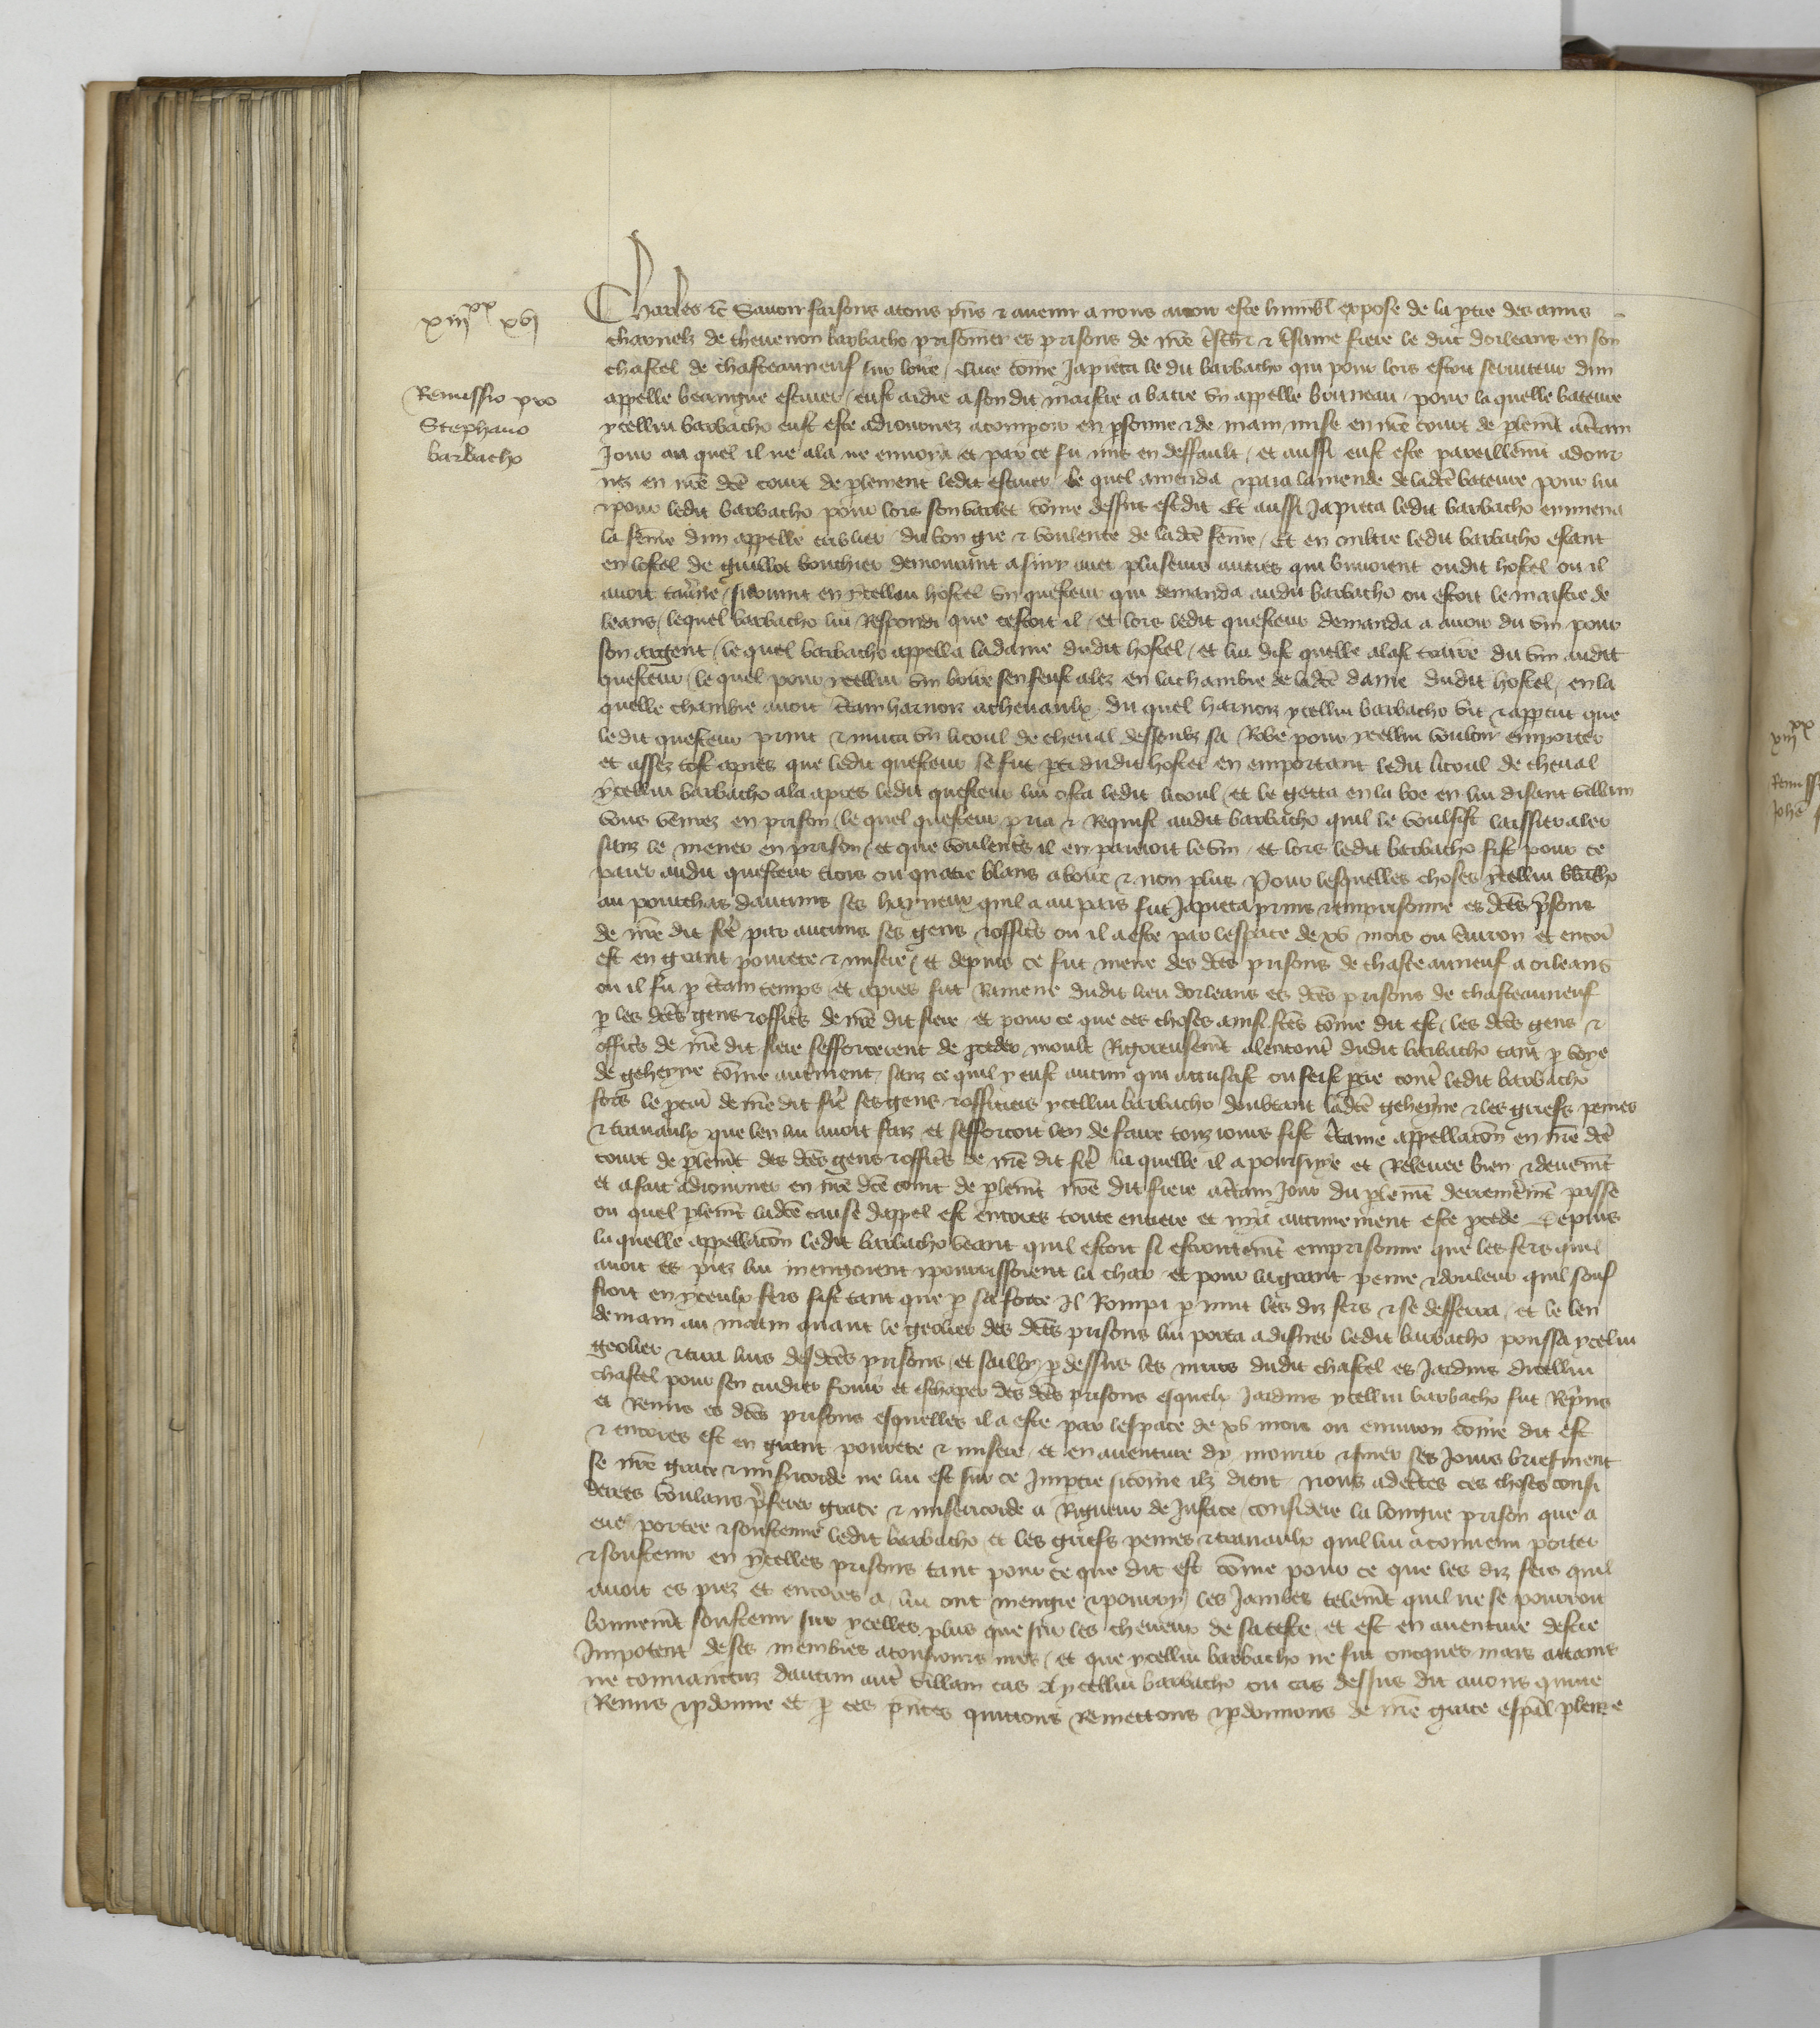 xiiijxx xvj
Remissio pro
Stephano
barbacho
Charles etc Savoir faisons a tous pns et avenir a nous avoir este humbl expose de la ptie des amis
charnelz de thevenon barbacho prisonnier es prisons de nre treschr et tresame frere le duc dorleans en son
chastel de chasteauneuf sur loire / Que come Japieca le dit barbacho qui pour lors estoit serviteur dun
appelle estiver / eust aidie a son dit maistre a batre un appelle bruneau / pour la quelle bateure
ycellui barbacho eust este adiournez a comparoir en psonne et de main mise en nre court de plemt a ctain
Jour au quel il ne ala ne envoia et par ce fu mis en deffault / et aussi eust este pareillemt adiour
nez en nre dce court de plement ledit estiver le quel amenda et paia lamende de ladce bateure pour lui
et pour ledit barbacho pour lors son varlet come dessus est dit Et aussi Japieca ledit barbacho enmena
la feme dun appelle du bon gre et voulente de ladce feme / Et en oultre ledit barbacho estant
en lostel de guillot bouchier demourant a avec pluseurs autres qui buvoient oudit hostel ou il
avoit tav'ne / sourvint en ycellui hostel un questeur qui demanda audit barbacho ou estoit le maistre de
leans / lequel barbacho lui Respondi que cestoit il / et lors ledit questeur demanda a avoir du vin pour
son argent / le quel barbacho appella la dame dudit hostel / et lui dist quelle alast traire du vin audit
questeur / le quel pour ycellui vin boire sen feust alez en la chambre de ladce dame dudit hostel / en la
quelle chambre avoit ctain harnoiz a chevaulx du quel harnoiz ycellui barbacho vit et appceut que
ledit questeur print et muca un licoul de cheval dessoubz sa Robe pour ycellui vouloir emporter
et assez tost apres que ledit questeur se fut pti dudit hostel en emportant ledit licoul de cheval
ycellui barbacho ala apres ledit questeur lui osta ledit licoul / et le getta en la boe en lui disant villain
vous venrez en prison / le quel questeur pria et Requist audit barbacho quil le voulsist laissier aler
sanz le mener en prison / et que voulents il en paieroit le vin / et lors ledit barbacho fist pour ce
paier audit questeur trois ou quatre blans a boire et non plus Pour lesquelles choses ycellui barbacho
au pourchas daucuns ses hayneux quil a au pais fut Japieca prins et emprisonne es dces prisons
de nre dit fre par aucuns ses gens et offices ou il a este par lespace de xv mois ou environ et encor
est en grant povrete et misere / et depuis ce fut mene des dces prisons de chasteauneuf a orleans
ou il fu p ctain temps / et apres fut Ramene dudit lieu dorleans es dces prisons de chasteauneuf
p les dces gens et offices de nre dit frere / et pour ce que ces choses ainsi fces come dit est / les dces gens et
offices de nre dit frere sefforcerent de pceder moult Rigoreusemt alencont dudit barbacho tant p voye
de geheyne come autrement / sanz ce quil y eust aucun qui accusast ou feist ptie cont ledit barbacho
fors le pcur de nre dit fre ses gens et officiers ycellui barbacho doubtant ladce geheyne et les griefs peines
et travaulx que len lui avoit faiz et sefforcoit len de faire touz iours fist ctaine appellacon en nre dce
court de plemt des dces gens et offices de nre dit fre la quelle il a poursuye et Relevee bien et deuemt
et a fait adiourner en nre dce court de plemt nre dit frere a ctain Jour du plemt derrenieremt passe
ou quel plemt ladce cause dappel est encores toute entiere et ny a aucunement este pcede Depuis
la quelle appellacon ledit barbacho veant quil estoit si estroictemt emprisonne que les fers quil
avoit es piez lui mengoient et pourrissoient la char / et pour la grant peine et douleur quil souf
froit en yceulx fers fist tant que p sa force Il Rompi p nuit les diz fers et se defferra / et le len
demain au matin quant le geolier des dces prisons lui porta a disner ledit barbacho poussa ycelui
geolier et tira luis desdces prisons / et sailly p dessus les murs dudit chastel es Jardins dicellui
chastel pour sen cuidier fouir et eschaper des dces prisons esquelx Jardins ycellui barbacho fut Reprins
et Remis es dces prisons esquelles il a este par lespace de xv mois ou environ come dit est
et encores est en grant povrete et misere / et en aventure dy mourir et finer ses Jours briefment
se nre grace et misericorde ne lui est sur ce Impartie si come ilz dient / nous adcertes ces choses consi
derees voulans pferer grace et misericorde a Rigueur de Justice / considere la longue prison que a
eue portee et soustenue ledit barbacho et les griefs peines et travaulx quil lui a convenu porter
et soustenir en ycelles prisons tant pour ce que dit est come pour ce que les diz fers quil
avoit es piez et encores a / lui ont mengie et pourry les Jambes telemt quil ne se pourroit
bonnemt soustenir sur ycelles plus que sur les cheveux de sa teste / et est en aventure destre
Impotent de ses membres a tousiours mes / et que ycellui barbacho ne fut oncques mais attains
ne convaincuz daucun aut villain cas A ycellui barbacho ou cas dessus dit avons quicte
Remis et pdonne et p ces pntes quictons Remettons et pdonnons de nre grace espal pleine
xiiijxx
Remiss
Johe